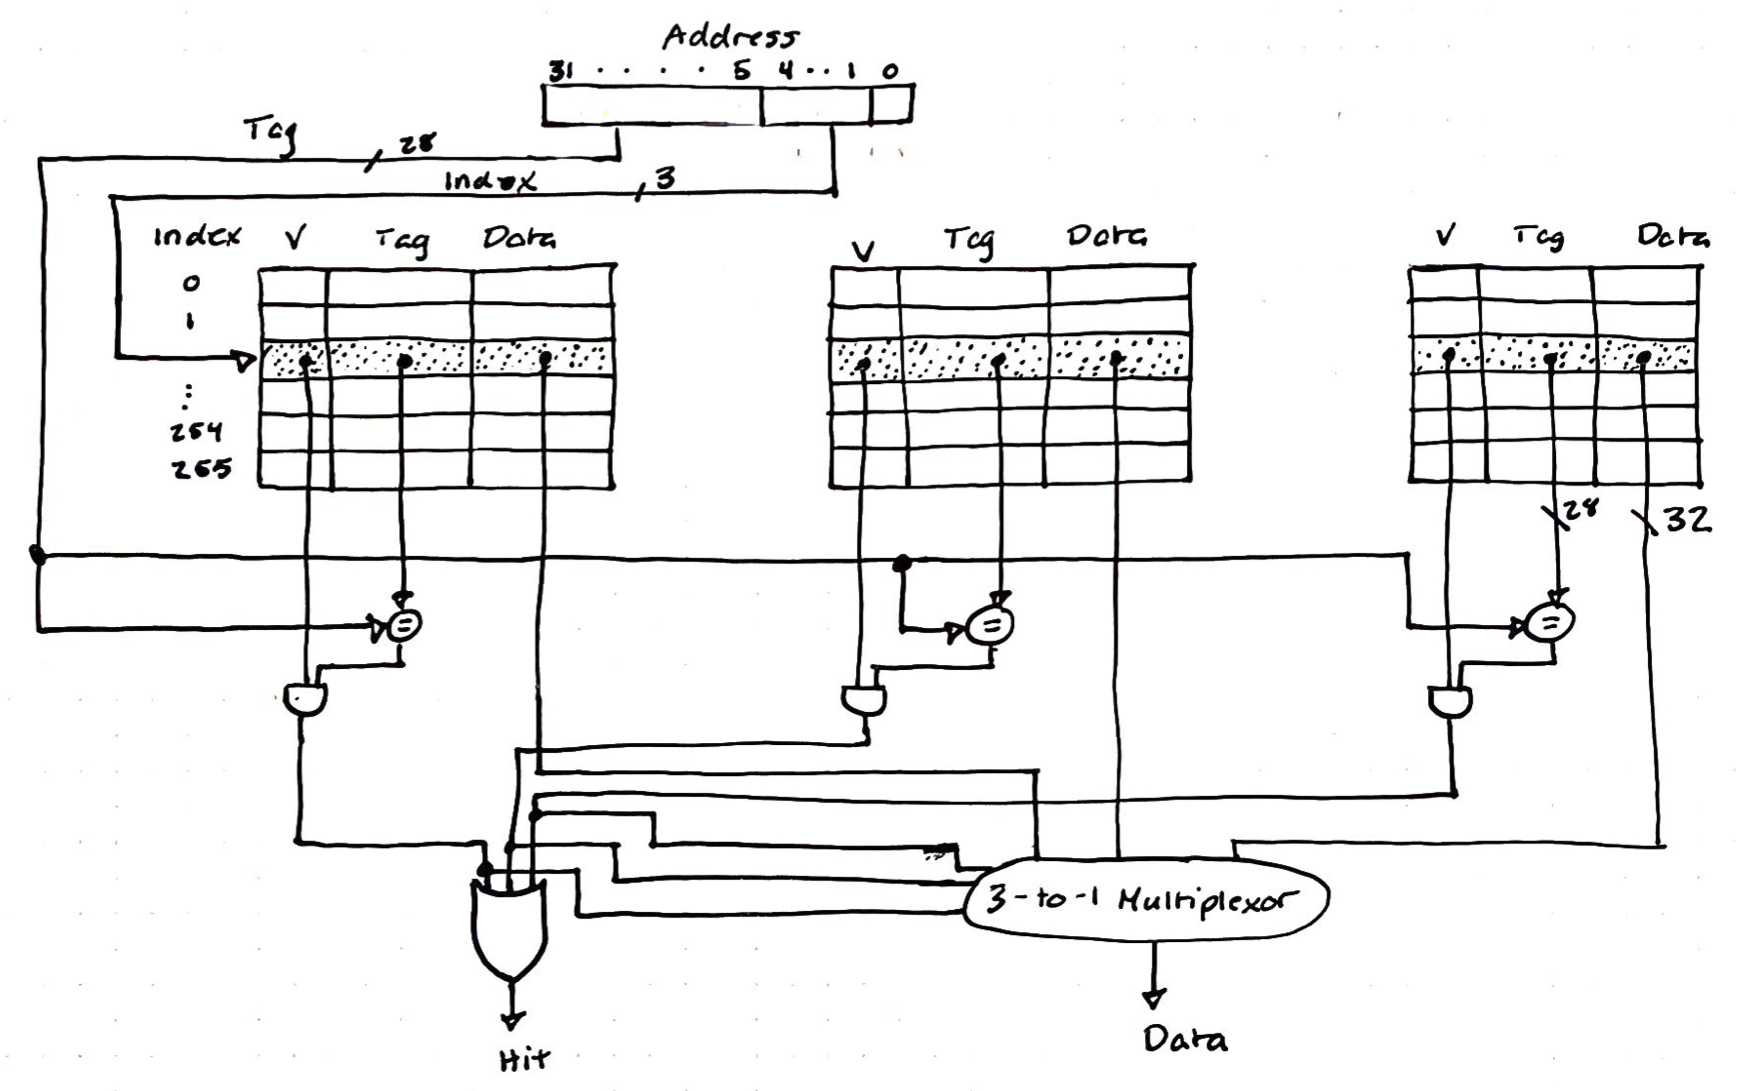 Address
31 · · · · 5 4 · · 1 0
Tag 28
Index 3
Index V Tag Data
V Tag Data
V Tag Data
0
1
⋮
254
255
28 32
= = =
3-to-1 Multiplexor
Hit
Data